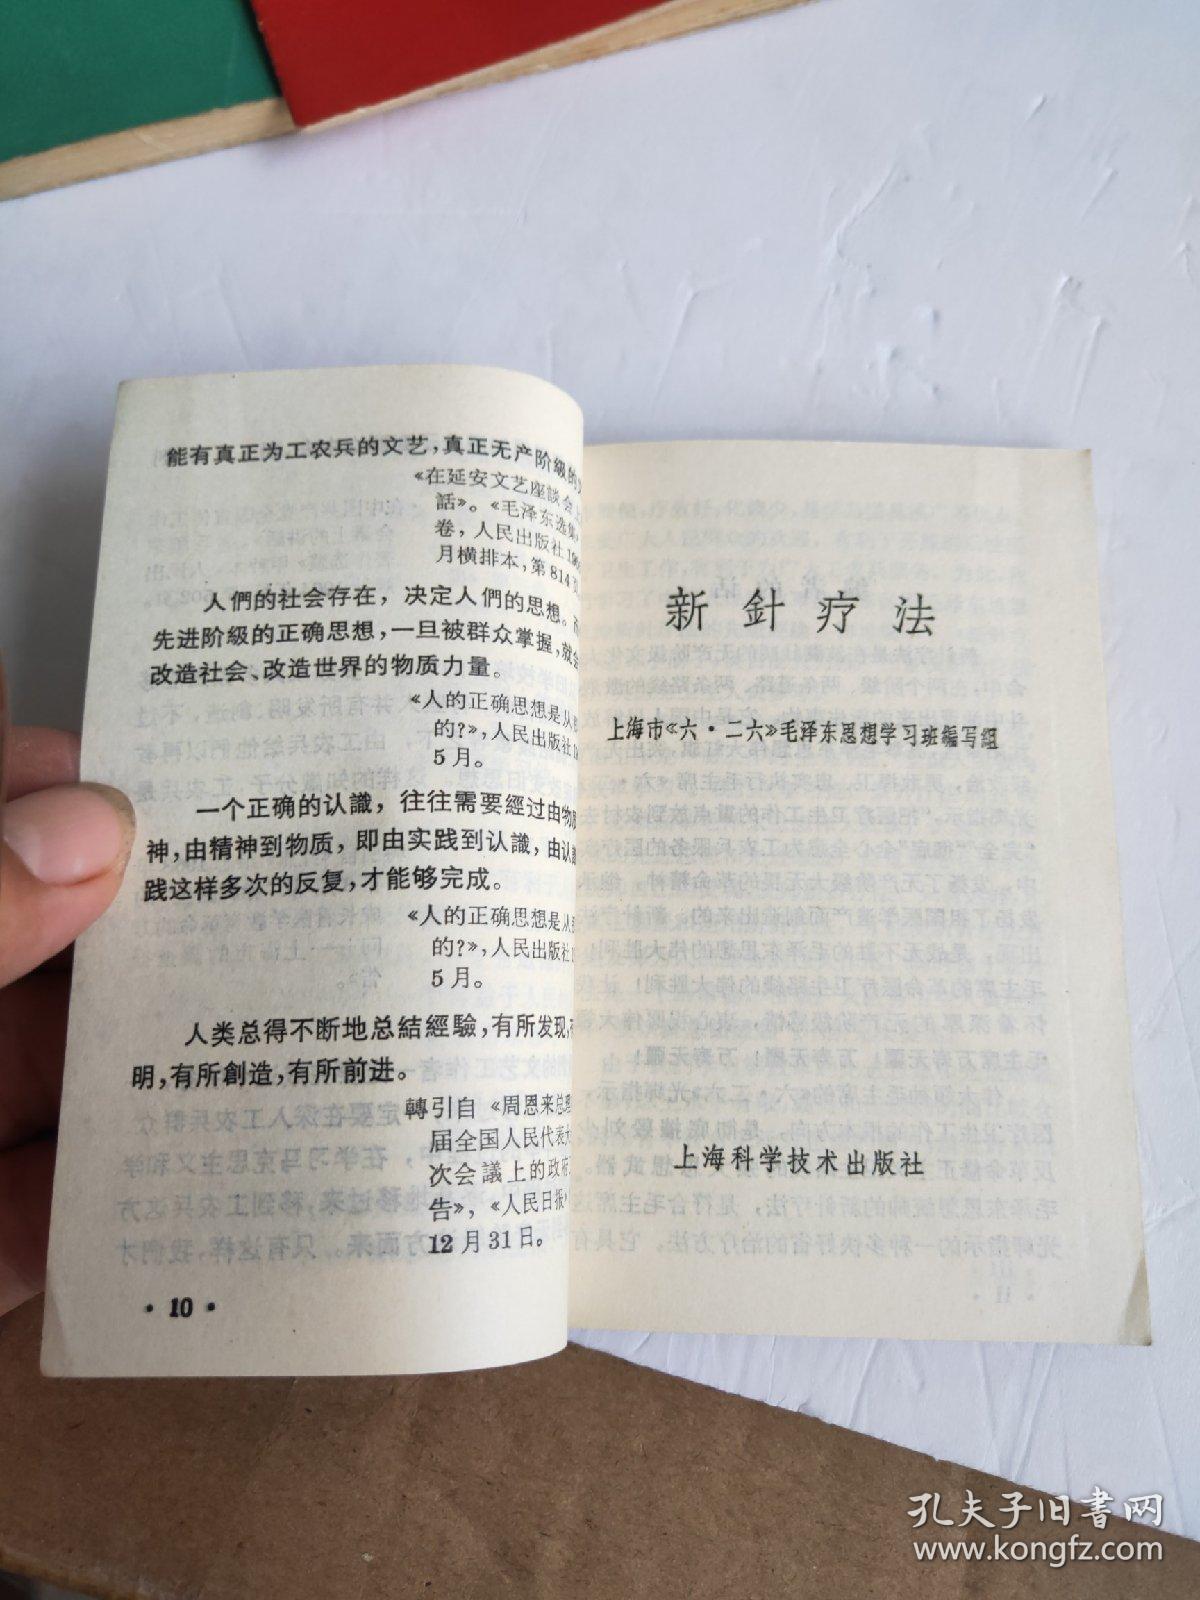 能有真正为工农兵的文艺，真正无产阶級的
《在延安文艺座談会
話》。《毛泽东选集
卷，人民出版社19
月横排本，第814
人們的社会存在，决定人們的思想。
先进阶級的正确思想，一旦被群众掌握，就会
改造社会、改造世界的物质力量。
《人的正确思想是从
的？》，人民出版社
5月。
一个正确的认識，往往需要經过由物
神，由精神到物质，即由实践到认識，由认
践这样多次的反复，才能够完成。
《人的正确思想是从
的？》，人民出版社
5月。
人类总得不断地总結經驗，有所发现，
明，有所創造，有所前进。
轉引自《周恩来总
届全国人民代表大
次会議上的政府
告》，《人民日报》
12月31日。
• 10 •
新針疗法
上海市《六·二六》毛泽东思想学习班編写組
上海科学技术出版社
孔夫子旧書网
www.kongfz.com